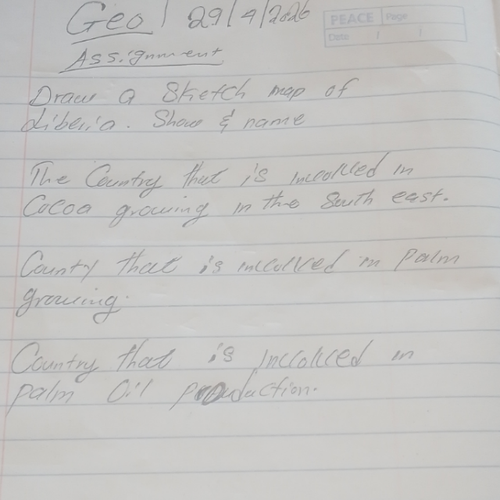 Geo | 29/4/2026
PEACE Page
Date / /
Assignment
Draw a Sketch map of
Liberia. Show & name
The Country that is involved in
Cocoa growing in the South east.
County that is involved in palm
growing.
Country that is involved in
palm Oil production.